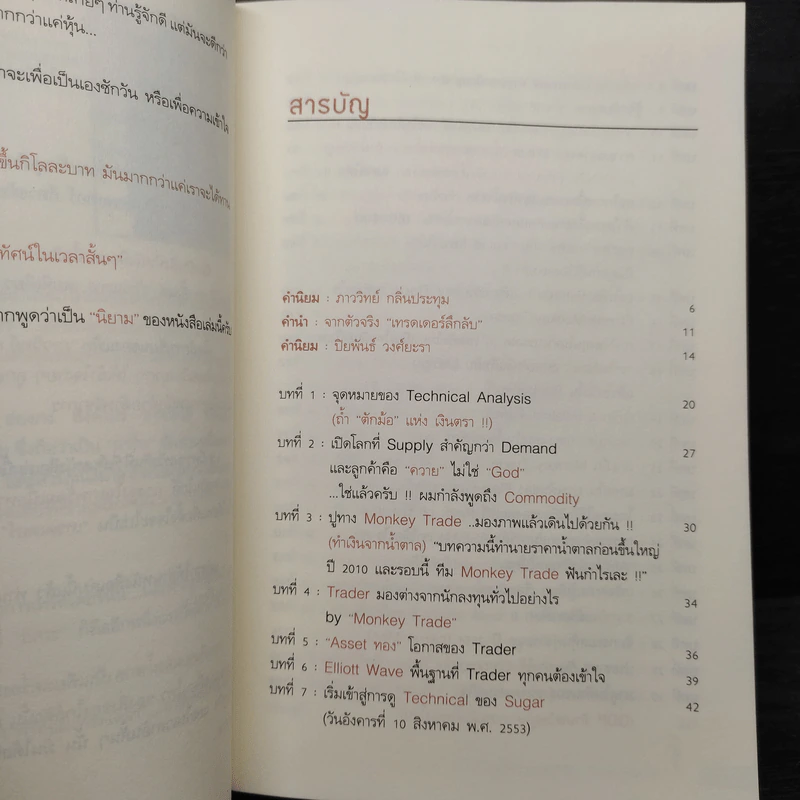 ท่านรู้จักดี แต่มันจะดีกว่า
กว่าแค่หุ้น...
จะเพื่อเป็นเองซักวัน หรือเพื่อความเข้าใจ
ขึ้นกิโลละบาท มันมากกว่าแค่เราจะได้ทาน
ทัศน์ในเวลาสั้นๆ"
พูดว่าเป็น "นิยาม" ของหนังสือเล่มนี้ครับ
สารบัญ
คำนิยม : ภาววิทย์ กลิ่นประทุม 6
คำนำ : จากตัวจริง "เทรดเดอร์ลึกลับ" 11
คำนิยม : ปิยพันธ์ วงศ์ยะรา 14
บทที่ 1 : จุดหมายของ Technical Analysis 20
(ถ้ำ "ตักม้อ" แห่ง เงินตรา !!)
บทที่ 2 : เปิดโลกที่ Supply สำคัญกว่า Demand 27
และลูกค้าคือ "ควาย" ไม่ใช่ "God"
...ใช่แล้วครับ !! ผมกำลังพูดถึง Commodity
บทที่ 3 : ปูทาง Monkey Trade ..มองภาพแล้วเดินไปด้วยกัน !! 30
(ทำเงินจากน้ำตาล) "บทความนี้ทำนายราคาน้ำตาลก่อนขึ้นใหญ่
ปี 2010 และรอบนี้ ทีม Monkey Trade ฟันกำไรเละ !!"
บทที่ 4 : Trader มองต่างจากนักลงทุนทั่วไปอย่างไร 34
by "Monkey Trade"
บทที่ 5 : "Asset ทอง" โอกาสของ Trader 36
บทที่ 6 : Elliott Wave พื้นฐานที่ Trader ทุกคนต้องเข้าใจ 39
บทที่ 7 : เริ่มเข้าสู่การดู Technical ของ Sugar 42
(วันอังคารที่ 10 สิงหาคม พ.ศ. 2553)